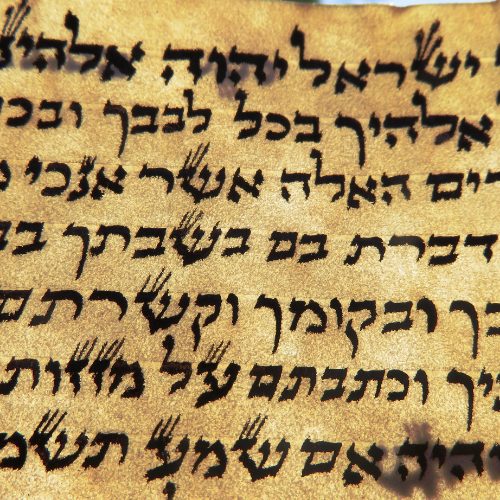 ישראל יהוה אלהינ
אלהיך בכל לבבך ובכ
רים האלה אשר אנכי
דברת בם בשבתך בב
בך ובקומך וקשרתם
יך וכתבתם על מזזות
והיה אם שמע תשמ